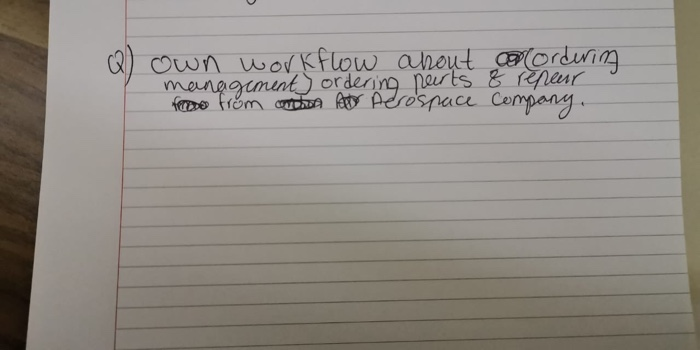 Q) own workflow about (ordering
management) ordering parts & repear
from Aerospace Company.